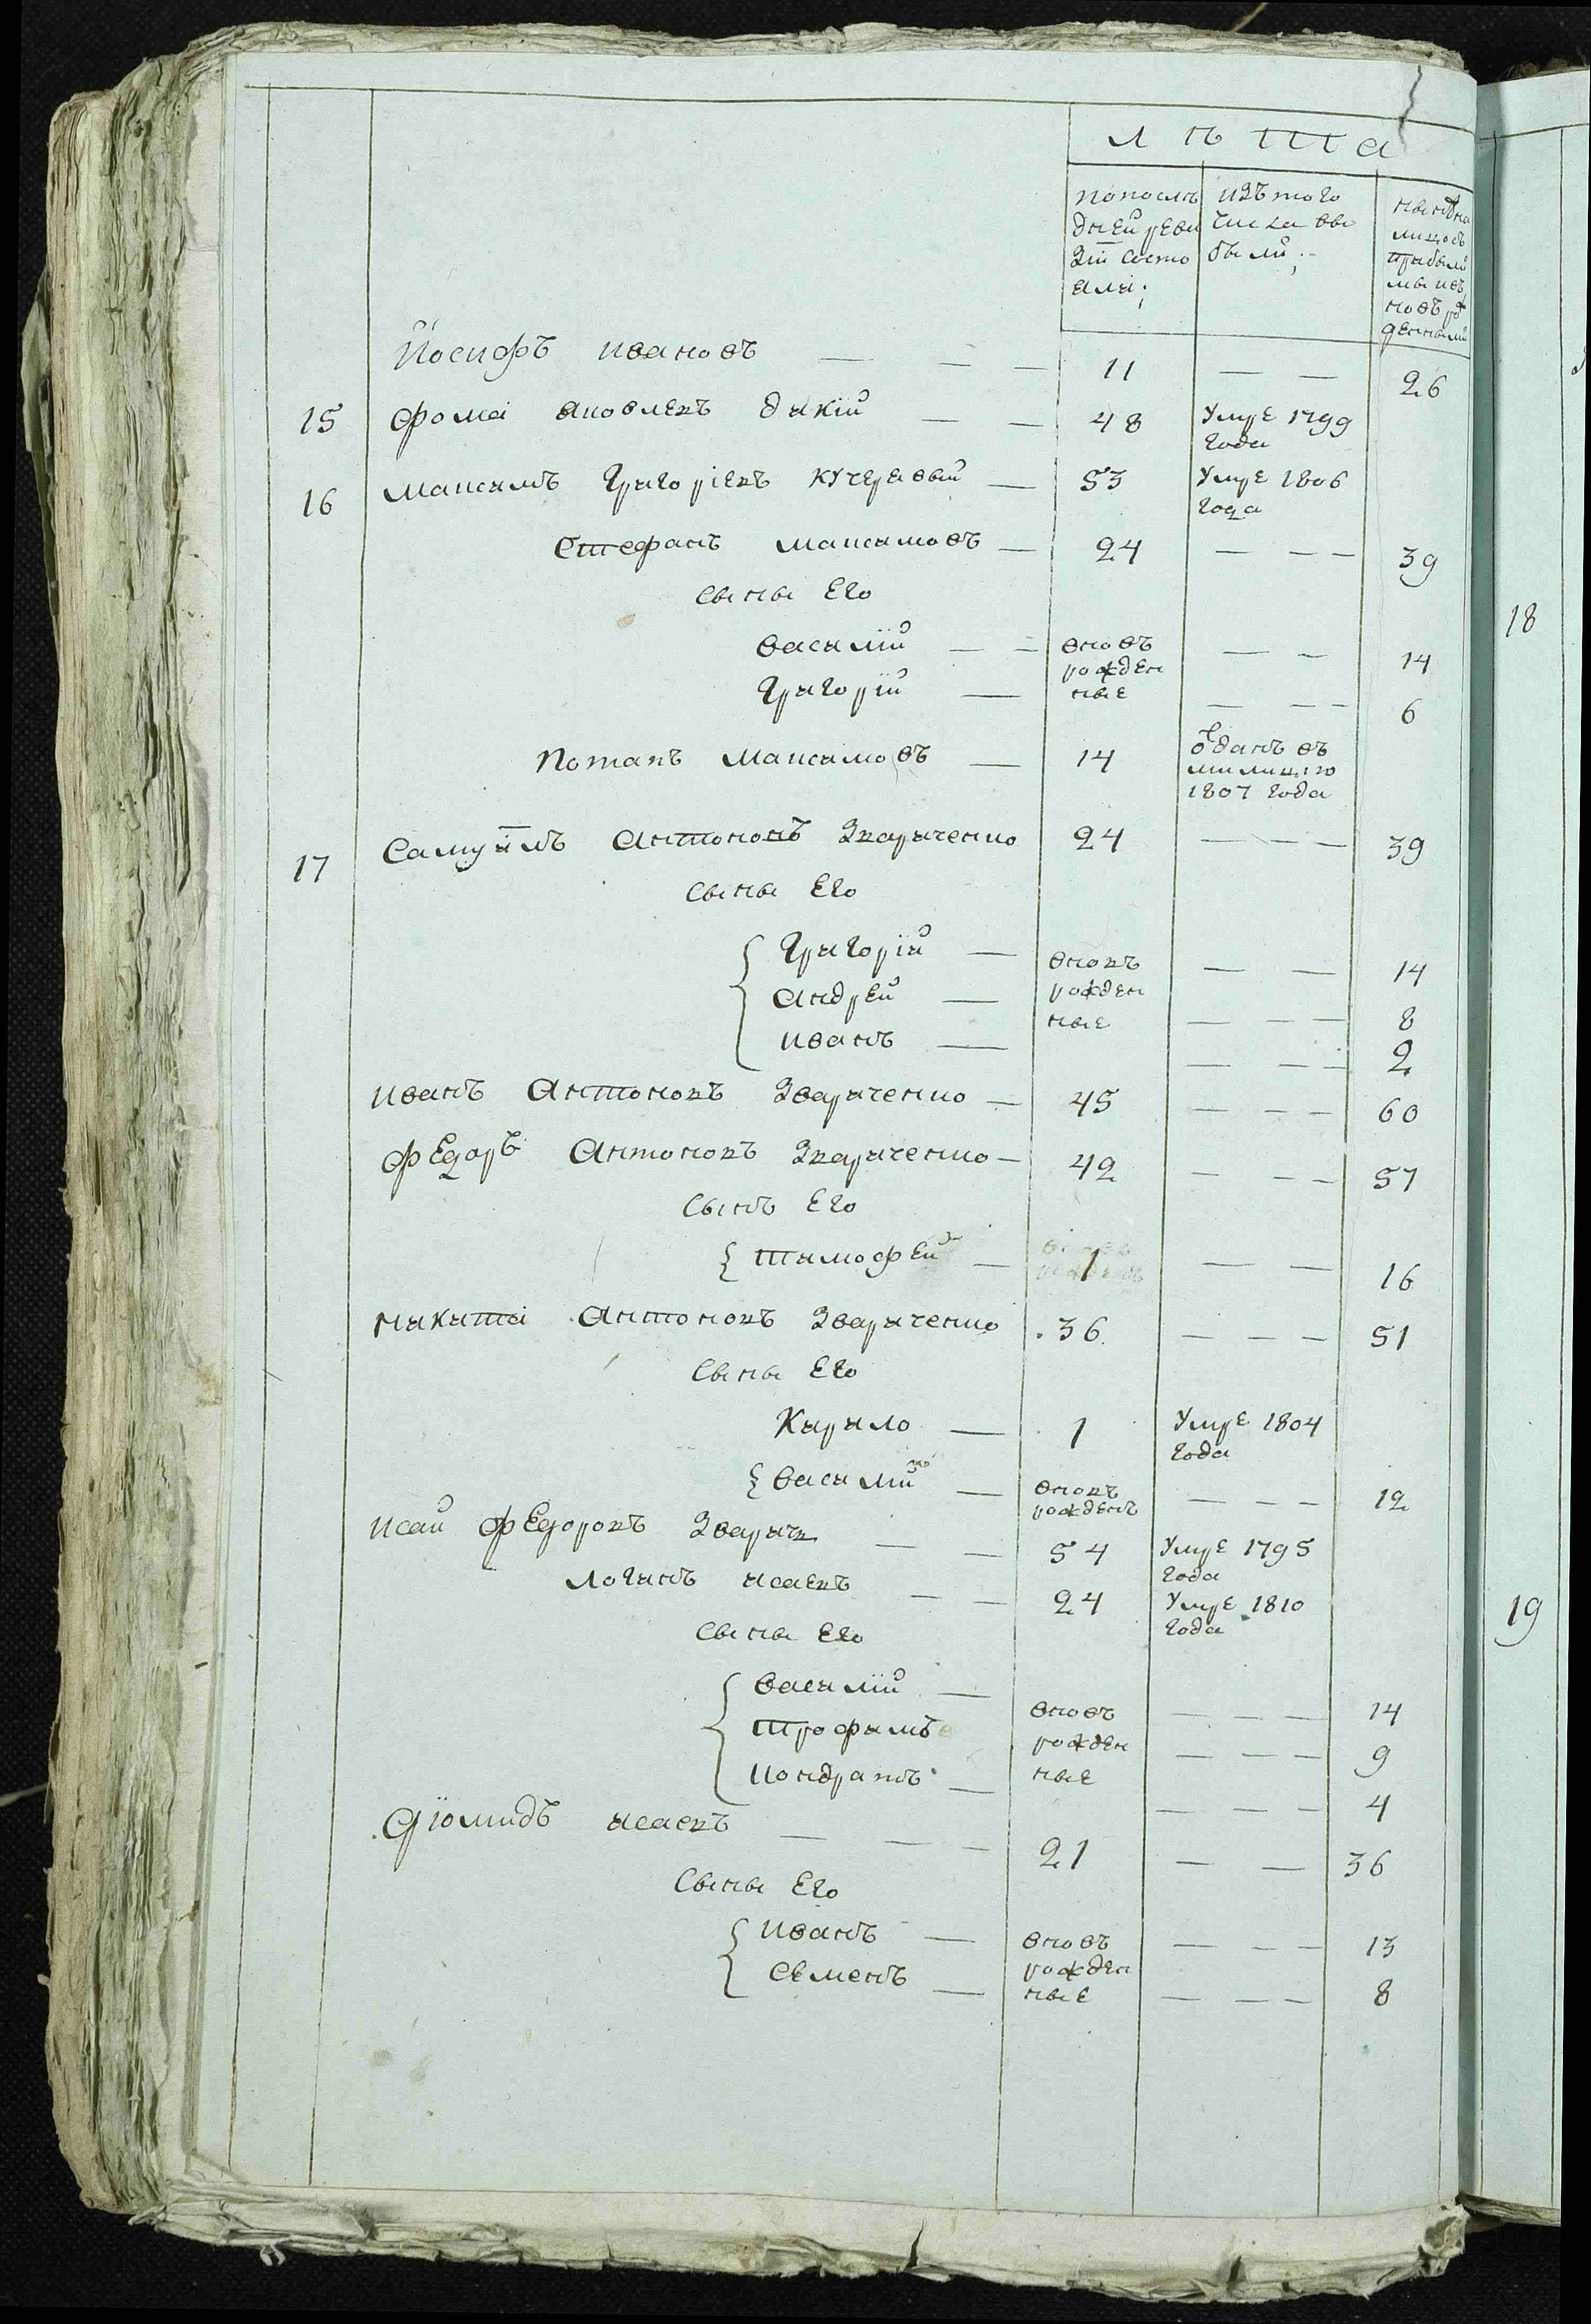 лѣта
попослѣ
дней реви
зіи состо
яли;
изъ того
числа вы
были;
нынѣ на
лицо съ
прибылы
ми въ
новъ рож
денными
Йосифъ Ивановъ — — — 11 — — 26
15 Фома Яковлевъ дикій — — 48 Умре 1799
года
16 Максимъ Григоріевъ Кучерявый — 53 Умре 1806
года
Стефанъ Максимовъ — 24 — — — 39
Сыны Его
Василій — — вновъ — — 14
рожден
Григорій — ные — — — 6
Потапъ Максимовъ — 14 отданъ въ
милицію
1807 года
17 Самуйлъ Антоновъ Звариченко 24 — — — 39
Сыны Его
Григорій — вновъ — — 14
Андрей — рожден
ные — — — 8
Иванъ — — — — 2
Иванъ Антоновъ Звариченко — 45 — — — 60
Федоръ Антоновъ Звариченко — 42 — — — 57
Сынъ Его
Тимофей — 1 — — 16
Никита Антоновъ Звариченко 36 — — — 51
Сыны Его
Кирило — 1 Умре 1804
года
Василій — вновъ — — — 12
рожденъ
Исай Федоровъ Зварич — — 54 Умре 1795
года
Логинъ Исаевъ — — 24 Умре 1810
года
Сыны Его
Василій — вновъ — — — 14
Трофимъ рожден — — — 9
Кондратъ — ные — — — 4
Діомидъ Исаевъ — — — 21 — — 36
Сыны Его
Иванъ — вновъ — — — 13
рожден
Семенъ — ные — — — 8
18
19